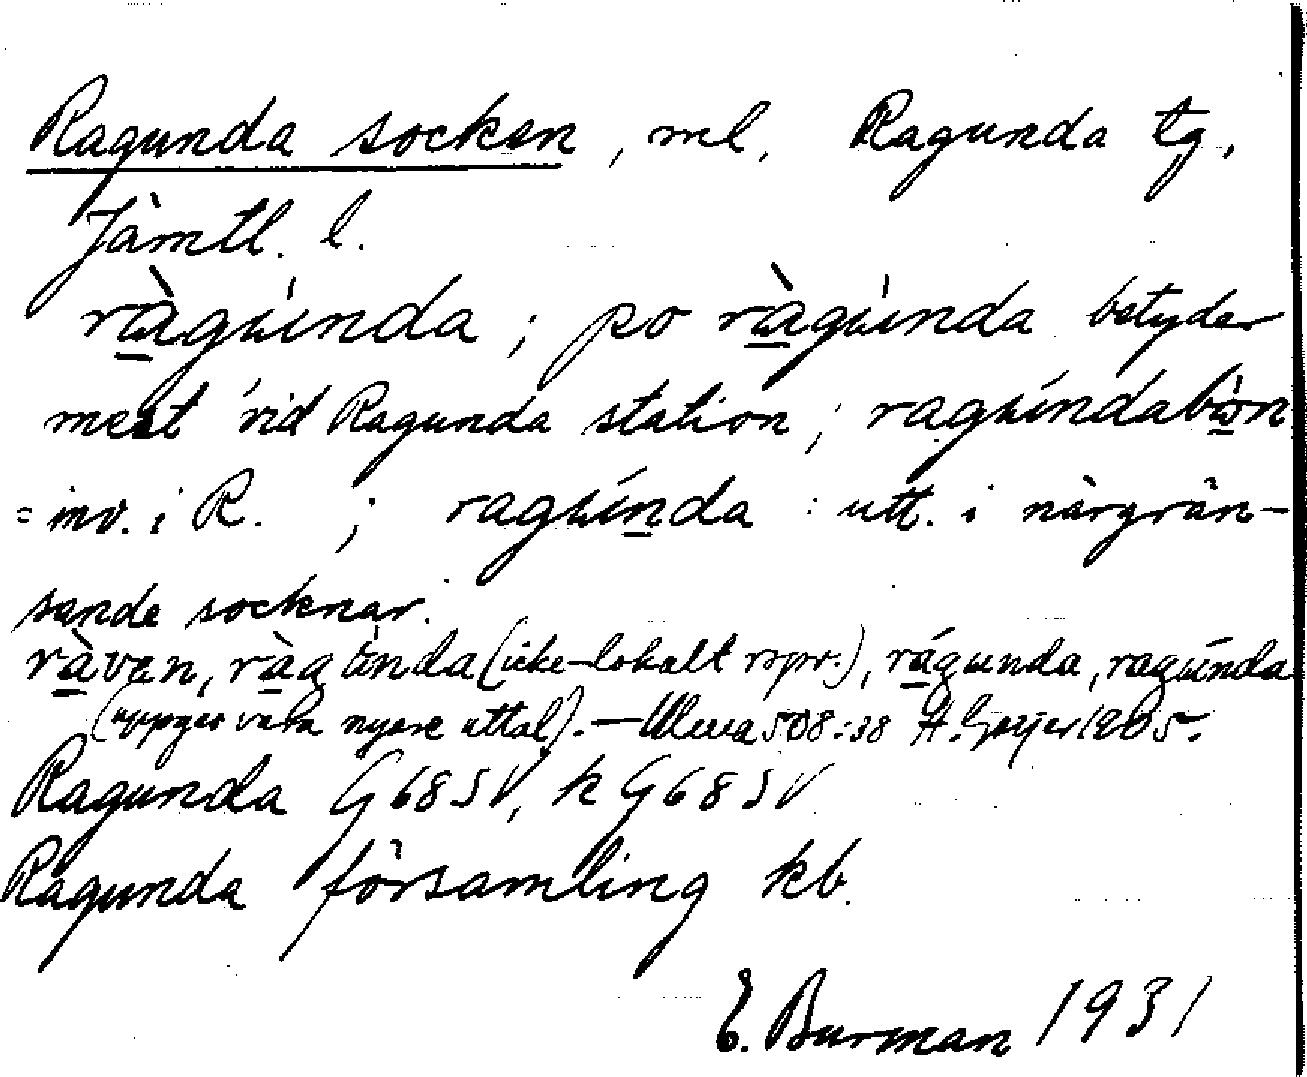 Ragunda socken, ml. Ragunda tg,
Jämtl. l.
ràgúnda; po ràgúnda betyder
mest vid Ragunda station; ragúndabòn
= inv. i R. ; ragúnda : utt. i närgrän-
sande socknar.
ràven, ràgúnda (icke-lokalt repr.), rágunda, ragúnda
(uppges vara nyare uttal). — Ulma 508:38 H. Geijer 1905.
Ragunda G685V, k G685V
Ragunda församling kb.
E. Burman 1931